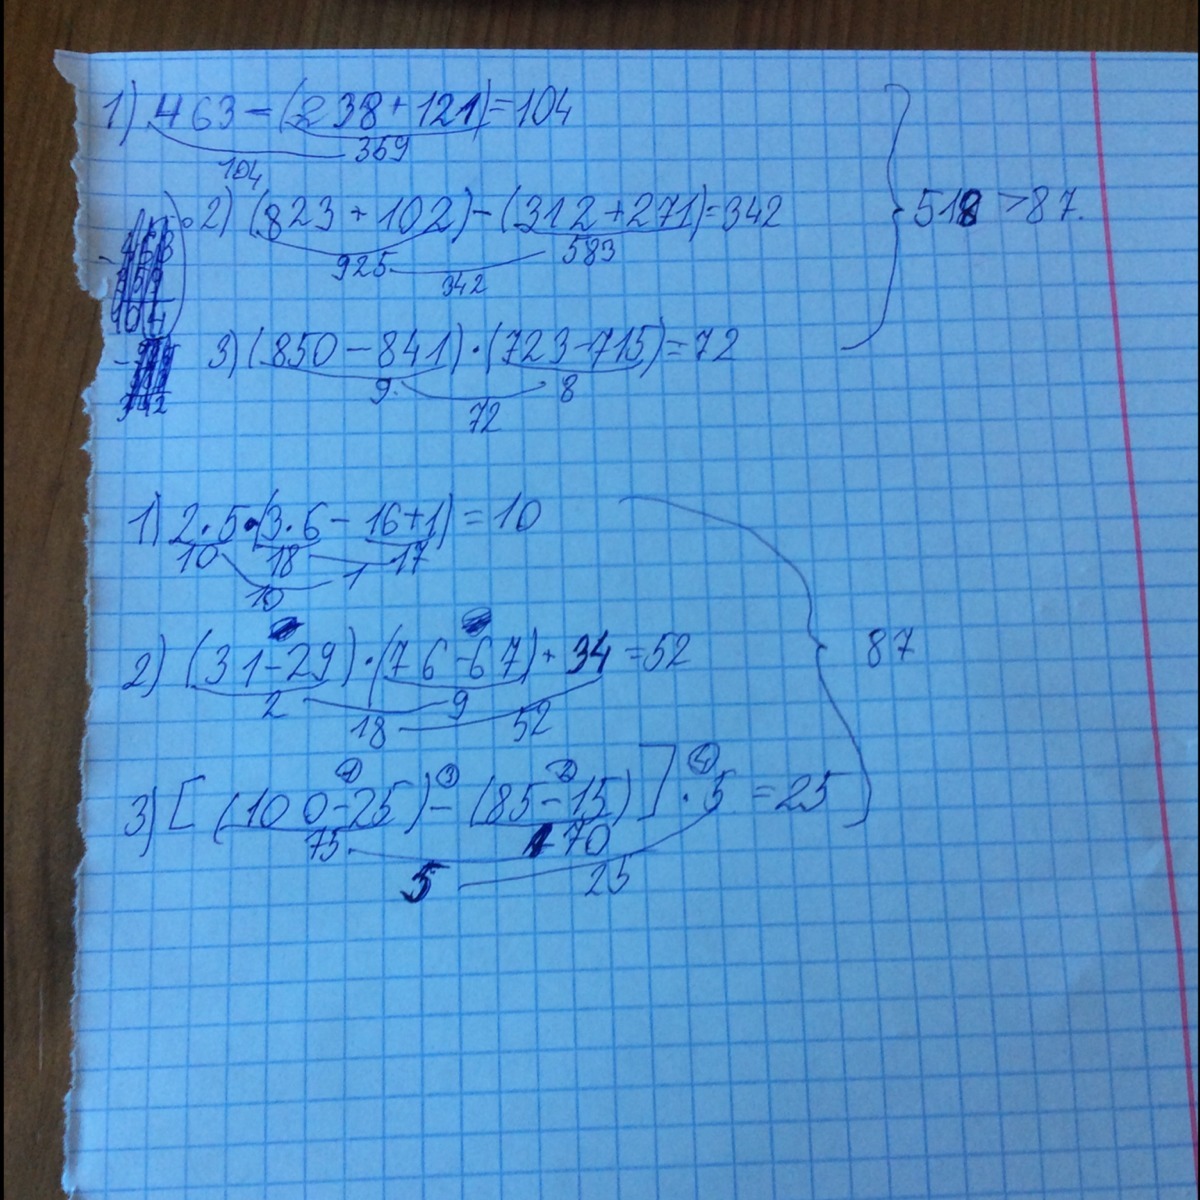 1) 463 - (238 + 121) = 104
359
104
2) (823 + 102) - (312 + 271) = 342
583
925
342
518 > 87.
3) (850 - 841) · (723 - 715) = 72
9 8
72
1) 2 · 5 · (3 · 6 - 16 + 1) = 10
10 18 17
1
10
2) (31 - 29) · (76 - 67) + 34 = 52
2 9
18 52
87
3) [(100 - 25) - (85 - 15)] · 5 = 25
75 70
5 25